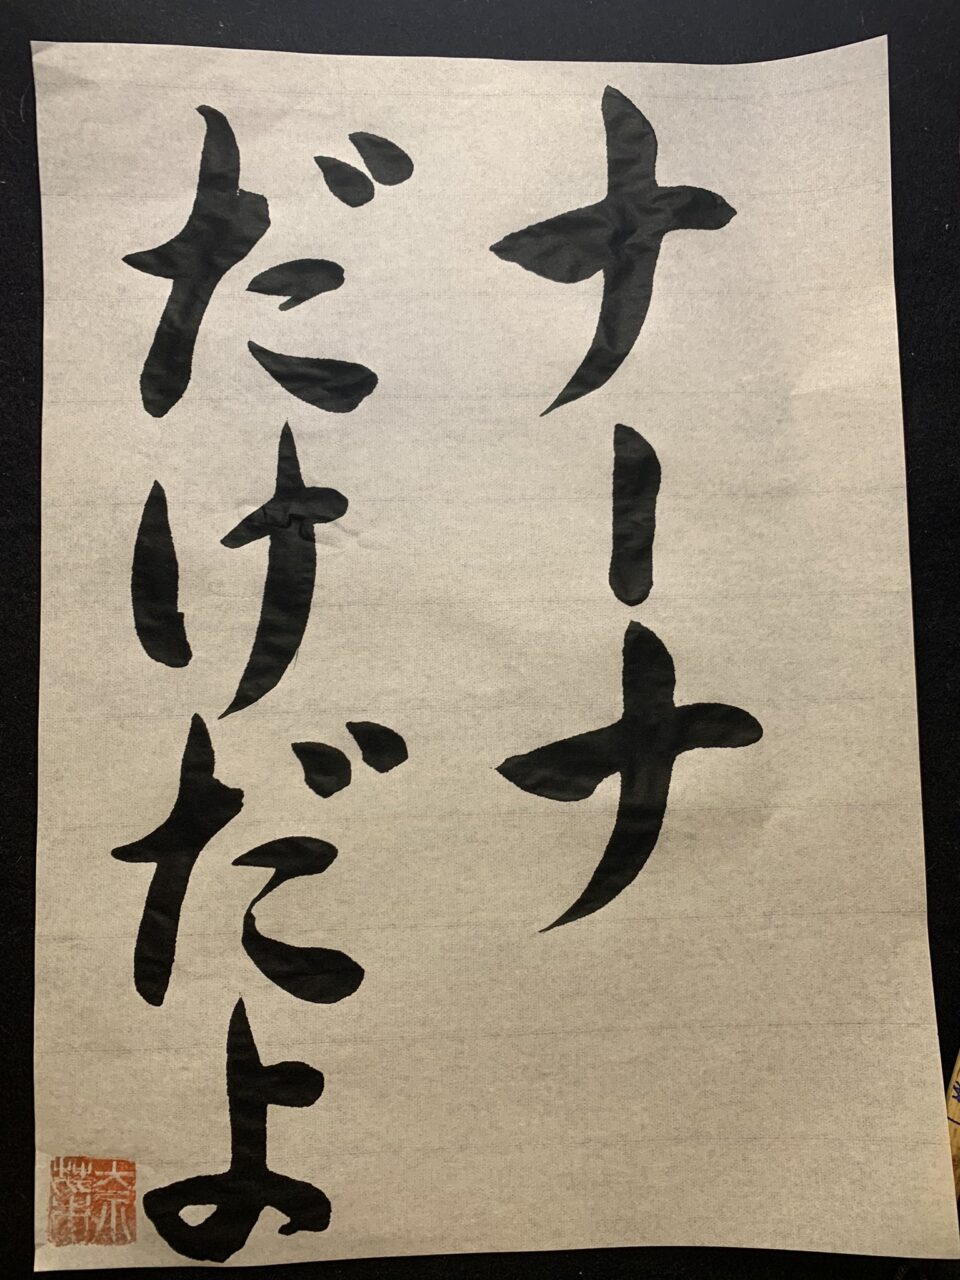 ナーナ
だけだよ